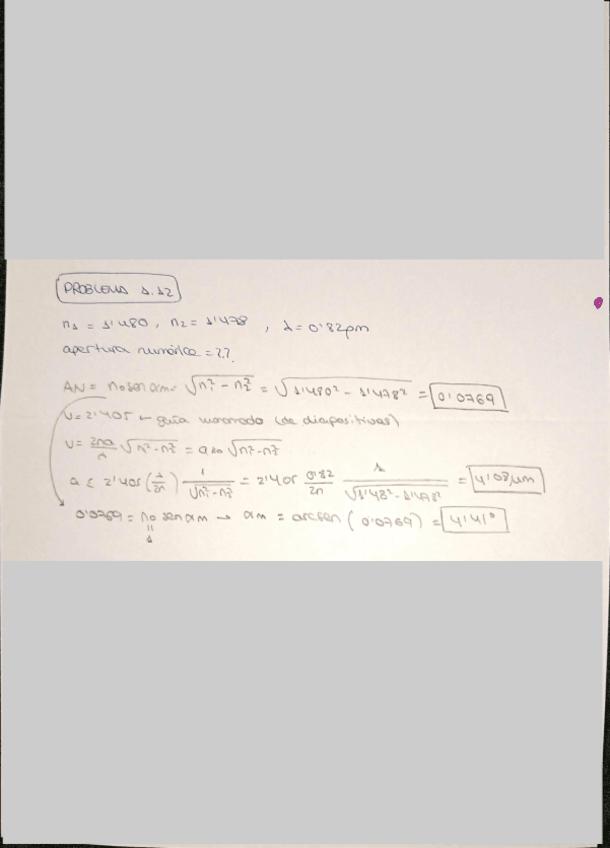 PROBLEMA 1.12
n₁ = 1'480, n₂ = 1'478, λ = 0'82μm
apertura numérica = ??.
AN = n₀ sen αm = √(n₁² - n₂²) = √(1'480² - 1'478²) = 0'0769
V = 2'405 ← guía monomodo (de diapositivas)
V = 2πa/λ √(n₁² - n₂²) = a k₀ √(n₁² - n₂²)
a ≤ 2'405 (λ/2π) 1/√(n₁² - n₂²) = 2'405 0'82/2π 1/√(1'48² - 1'478²) = 4'08μm
0'0769 = n₀ sen αm → αm = arcsen (0'0769) = 4'41°
"
1